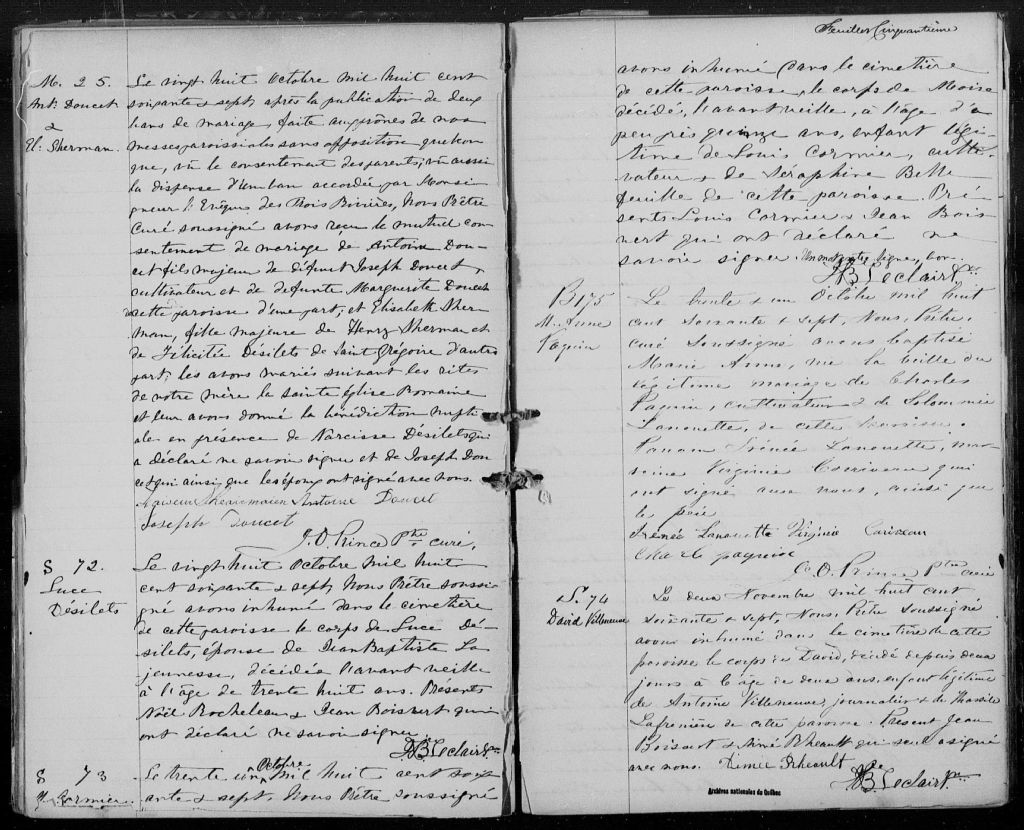 M. 25.
Ant. Doucet
&
El. Sherman.
Le vingt huit Octobre mil huit cent
soixante & sept, après la publication de deux
bans de mariage, faite aux prônes de nos
messes paroissiales sans opposition quelcon
que, vû le consentement des parents, vû aussi
la dispense d'un ban accordée par Monsei
gneur l'Evêque des Trois Rivières, Nous Prêtre
Curé soussigné avons reçu le mutuel con
sentement de mariage de Antoine Dou-
cet fils majeur de défunt Joseph Doucet,
cultivateur et de defunte Marguerite Doucet
de cette paroisse d'une part; et Elisabeth Sher
man, fille majeure de Henry Sherman et
de Félicitée Désilets de Saint Grégoire d'autre
part; les avons mariés suivant les rites
de notre mère la sainte église Romaine
et leur avons donné la bénédiction nupti
ale en présence de Narcisse Désilets qui
a déclaré ne savoir signer et de Joseph Dou
cet qui ainsi que les époux ont signé avec nous.
Antoine Doucet
Joseph Doucet
J. O. Prince Ptre curé.
S 72.
Luce
Désilets
Le vingt huit Octobre mil huit
cent soixante & sept, Nous Prêtre soussi
gné avons inhumé dans le cimetière
de cette paroisse le corps de Luce Dé
silets, épouse de Jean Baptiste La
jeunesse, décédée l'avant veille
à l'âge de trente huit ans. Présents
Noël Rocheleau & Jean Boisvert qui
ont déclaré ne savoir signer.
Leclair Ptre
S 73
M. Cormier.
Le trente un Octobre mil huit cent soix
ante & sept, Nous Prêtre soussigné
Feuillet Cinquantième
avons inhumé dans le cimetière
de cette paroisse, le corps de Moïse
décédé, l'avant veille, à l'âge d'à
peu près quinze ans, enfant légi-
time de Louis Cormier, culti-
vateur & de Séraphine Belle
feuille de cette paroisse. Pré
sents Louis Cormier & Jean Bois
vert qui ont déclaré ne
savoir signer.
Leclair Ptre
B 175
M. Anne
Paquin
Le trente & un Octobre mil huit
cent soixante & sept, Nous, Prêtre,
curé soussigné avons baptisé
Marie Anne, née la veille du
légitime mariage de Charles
Paquin, cultivateur & de Salommée
Lanouette, de cette paroisse.
Parrain Irénée Lanouette, mar-
raine Virginie qui
ont signé avec nous, ainsi que
le père
Irénée Lanouette Virginie
J. O. Prince Ptre curé
S. 74
David Villeneuve
Le deux Novembre mil huit cent
soixante & sept, Nous, Prêtre soussigné
avons inhumé dans le cimetière de cette
paroisse le corps de David, décédé depuis deux
jours à l'âge de deux ans, enfant légitime
de Antoine Villeneuve, journalier & de Tharsile
Lafrenière de cette paroisse. Présent Jean
Boisvert & Aimé Rheault qui seul a signé
avec nous. Aimée Rheault
Leclair Ptre
Archives nationales du Québec